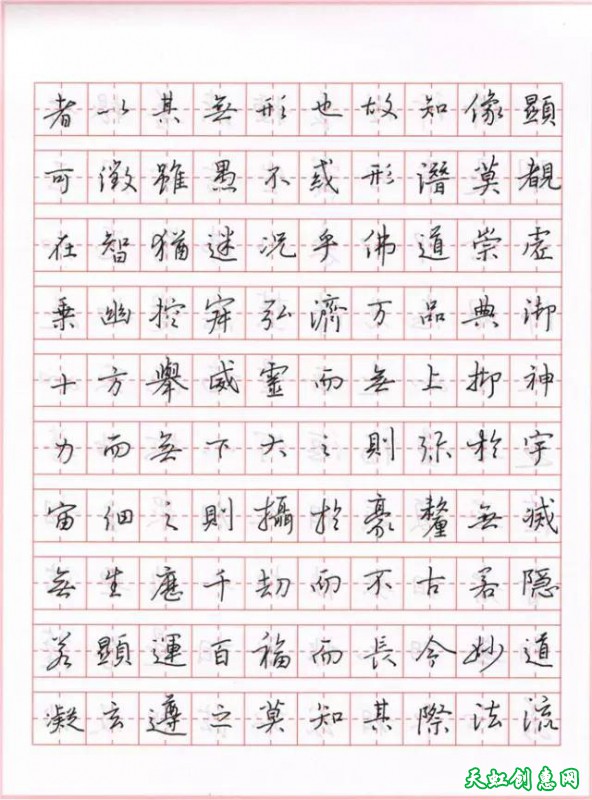 者以其無形也故知像顯
可徵雖愚不惑形潛莫覩
在智猶迷況乎佛道崇虛
乗幽控寂弘濟万品典御
十方舉威靈而無上抑神
力而無下大之則弥於宇
宙細之則攝於豪釐無滅
無生歷千劫而不古若隱
若顯運百福而長今妙道
凝玄遵之莫知其際法流
天虹创惠网